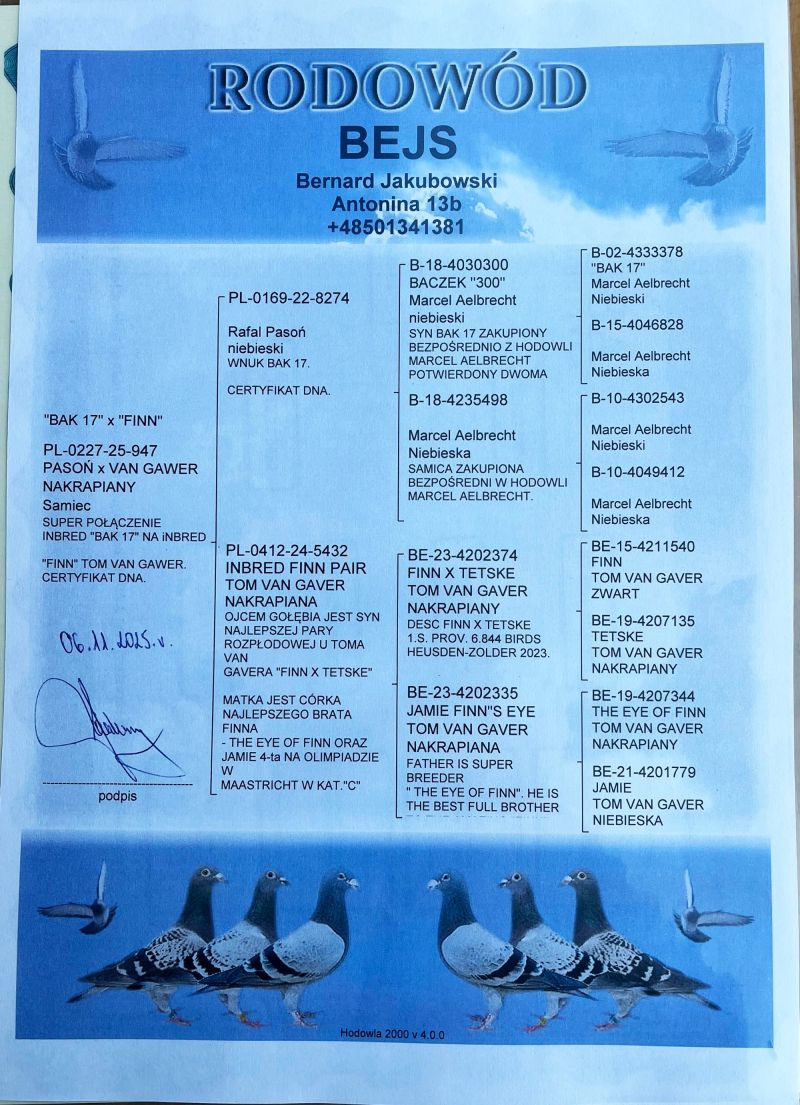 RODOWÓD
BEJS
Bernard Jakubowski
Antonina 13b
+48501341381
"BAK 17" x "FINN"
PL-0227-25-947
PASOŃ x VAN GAWER
NAKRAPIANY
Samiec
SUPER POŁĄCZENIE
INBRED "BAK 17" NA iNBRED
"FINN" TOM VAN GAWER.
CERTYFIKAT DNA.
06.11.2025.r.
podpis
PL-0169-22-8274
Rafal Pasoń
niebieski
WNUK BAK 17.
CERTYFIKAT DNA.
PL-0412-24-5432
INBRED FINN PAIR
TOM VAN GAVER
NAKRAPIANA
OJCEM GOŁĘBIA JEST SYN
NAJLEPSZEJ PARY
ROZPŁODOWEJ U TOMA
VAN
GAVERA "FINN X TETSKE"
MATKA JEST CÓRKA
NAJLEPSZEGO BRATA
FINNA
- THE EYE OF FINN ORAZ
JAMIE 4-ta NA OLIMPIADZIE
W
MAASTRICHT W KAT."C"
B-18-4030300
BACZEK "300"
Marcel Aelbrecht
niebieski
SYN BAK 17 ZAKUPIONY
BEZPOŚREDNIO Z HODOWLI
MARCEL AELBRECHT
POTWIERDONY DWOMA
B-18-4235498
Marcel Aelbrecht
Niebieska
SAMICA ZAKUPIONA
BEZPOŚREDNI W HODOWLI
MARCEL AELBRECHT.
BE-23-4202374
FINN X TETSKE
TOM VAN GAVER
NAKRAPIANY
DESC FINN X TETSKE
1.S. PROV. 6.844 BIRDS
HEUSDEN-ZOLDER 2023.
BE-23-4202335
JAMIE FINN"S EYE
TOM VAN GAVER
NAKRAPIANA
FATHER IS SUPER
BREEDER
" THE EYE OF FINN". HE IS
THE BEST FULL BROTHER
B-02-4333378
"BAK 17"
Marcel Aelbrecht
Niebieski
B-15-4046828
Marcel Aelbrecht
Niebieska
B-10-4302543
Marcel Aelbrecht
Niebieski
B-10-4049412
Marcel Aelbrecht
Niebieska
BE-15-4211540
FINN
TOM VAN GAVER
ZWART
BE-19-4207135
TETSKE
TOM VAN GAVER
NAKRAPIANY
BE-19-4207344
THE EYE OF FINN
TOM VAN GAVER
NAKRAPIANY
BE-21-4201779
JAMIE
TOM VAN GAVER
NIEBIESKA
Hodowla 2000 v 4.0.0